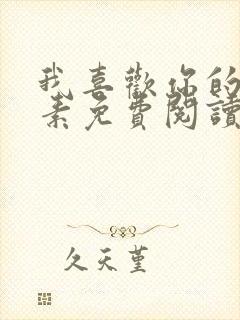 我喜歡你的
素免費閱讀
久天堇